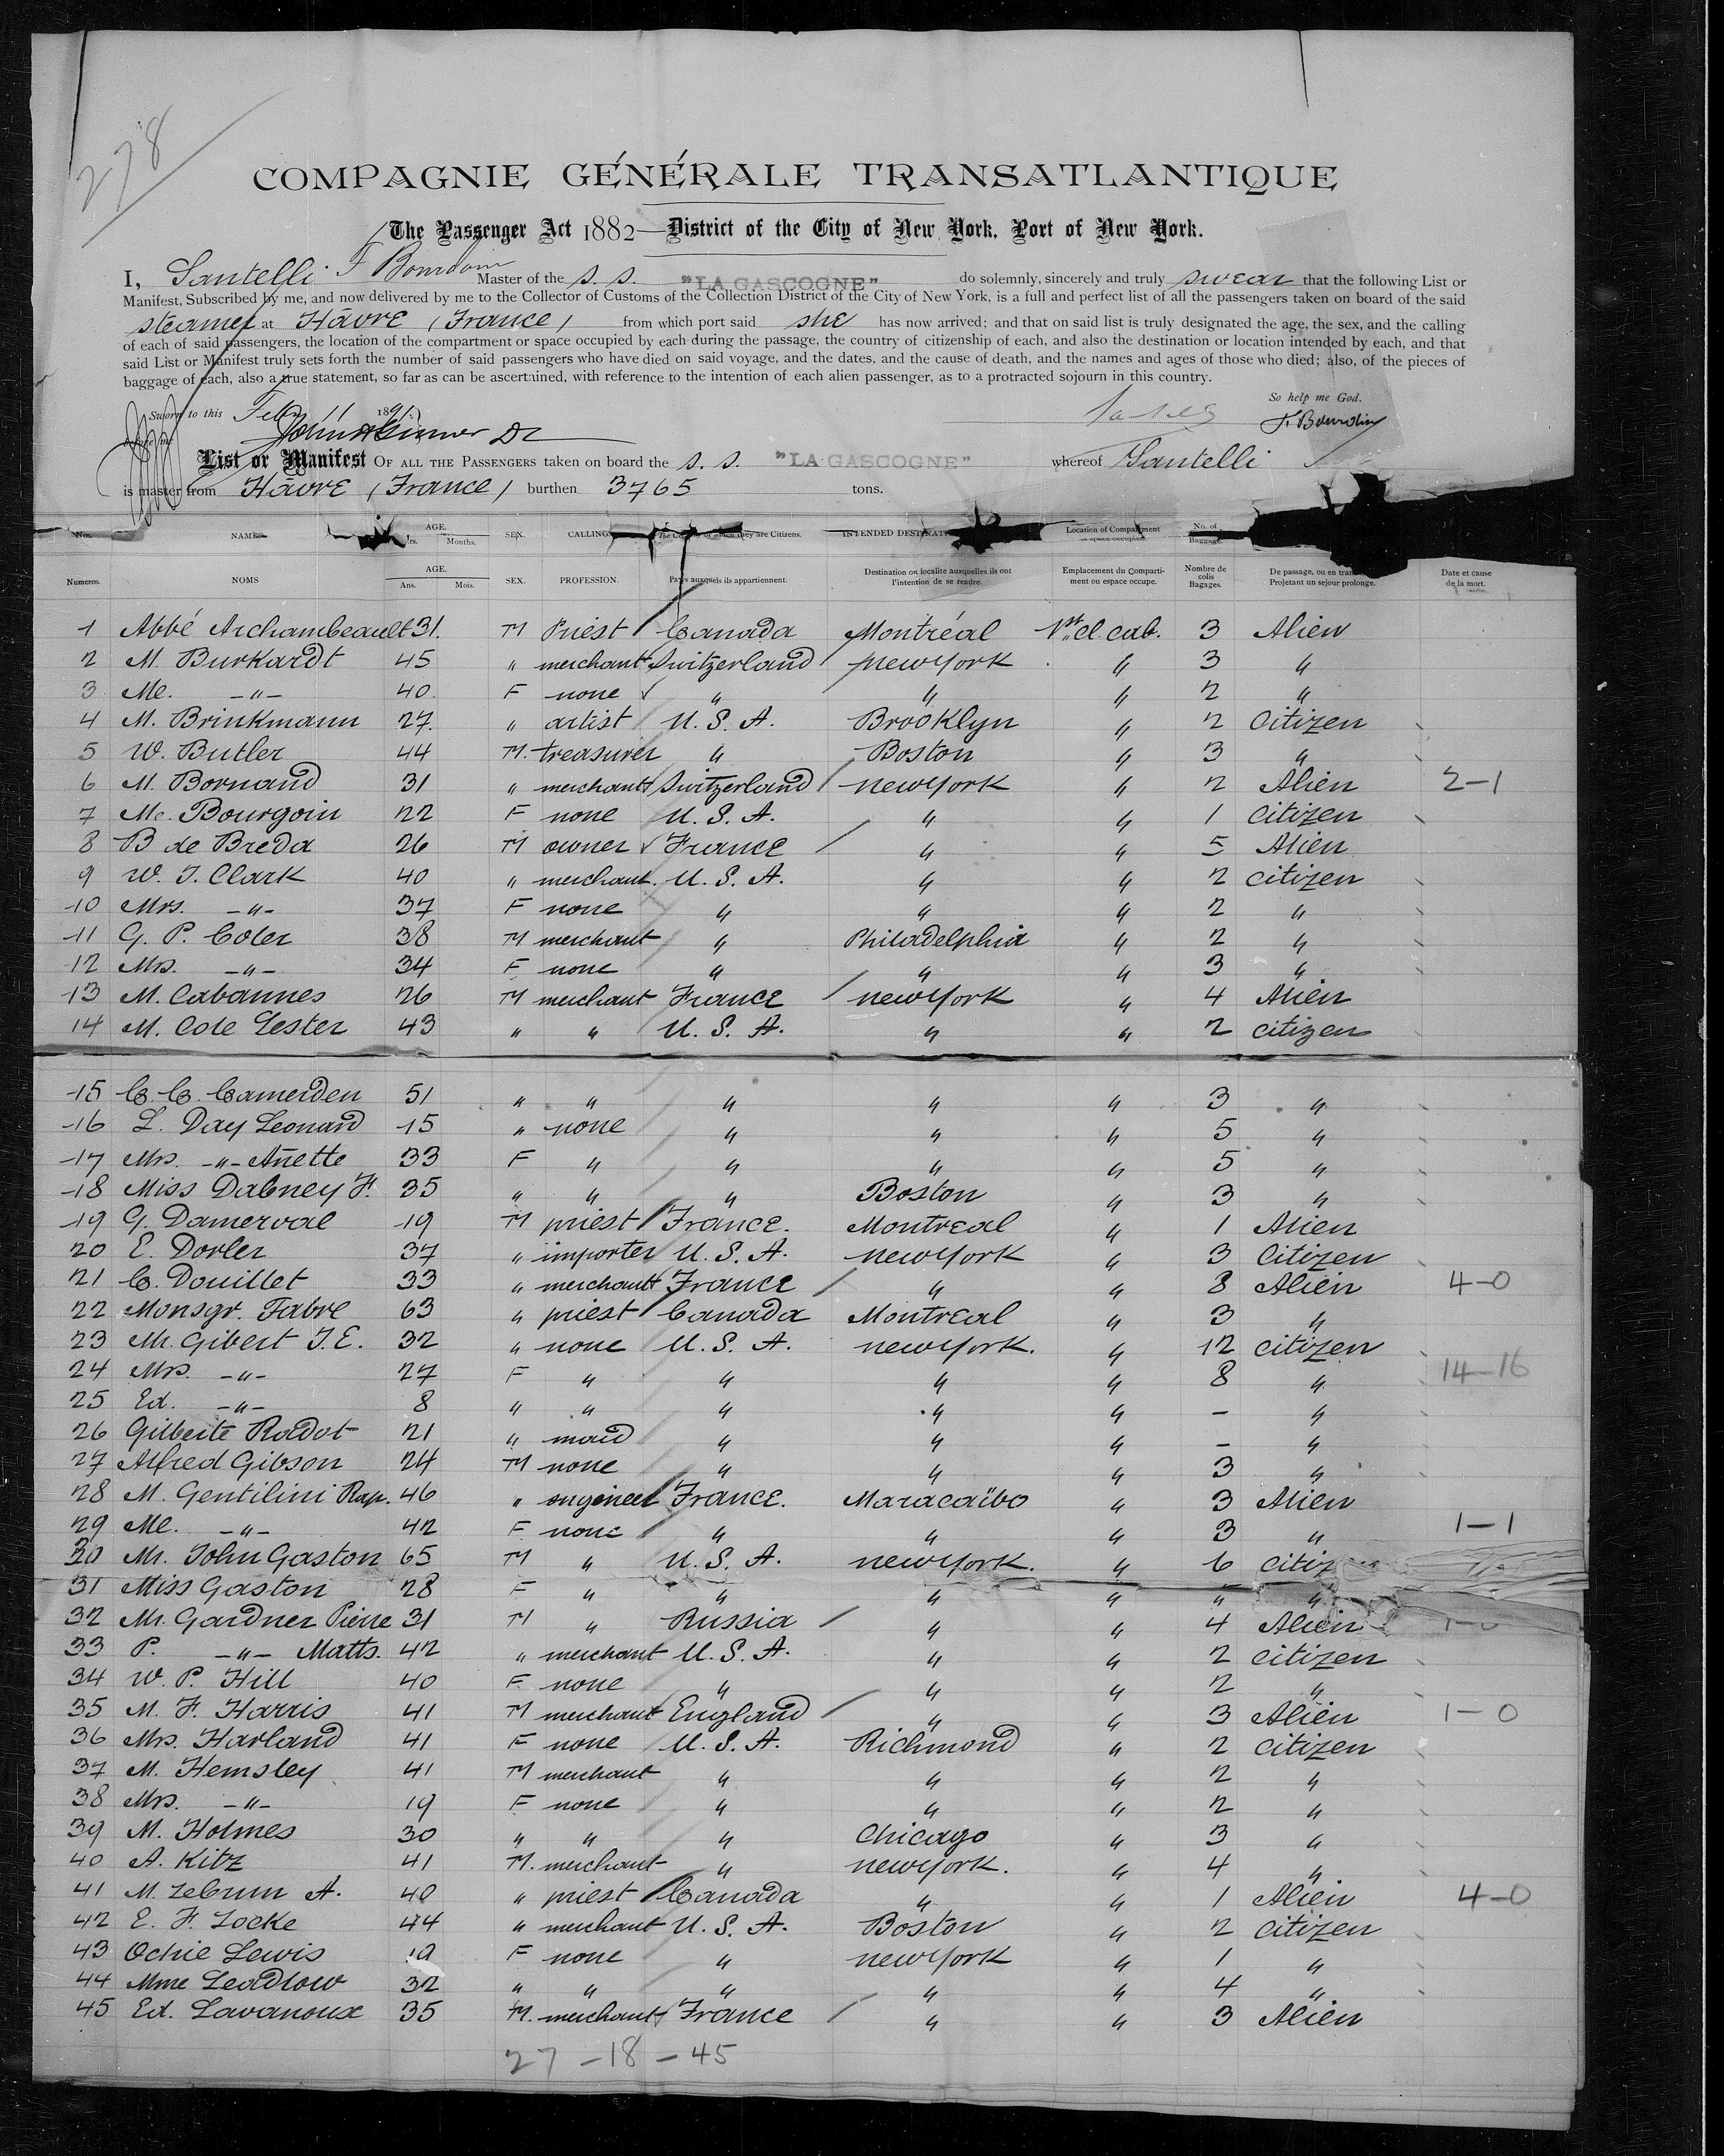 278
COMPAGNIE GÉNÉRALE TRANSATLANTIQUE
The Passenger Act 1882—District of the City of New York, Port of New York.
I, Santelli F Bourdon Master of the S. S. "LA GASCOGNE" do solemnly, sincerely and truly swear that the following List or
Manifest, Subscribed by me, and now delivered by me to the Collector of Customs of the Collection District of the City of New York, is a full and perfect list of all the passengers taken on board of the said
steamer at Hâvre (France) from which port said she has now arrived; and that on said list is truly designated the age, the sex, and the calling
of each of said passengers, the location of the compartment or space occupied by each during the passage, the country of citizenship of each, and also the destination or location intended by each, and that
said List or Manifest truly sets forth the number of said passengers who have died on said voyage, and the dates, and the cause of death, and the names and ages of those who died; also, of the pieces of
baggage of each, also a true statement, so far as can be ascertained, with reference to the intention of each alien passenger, as to a protracted sojourn in this country.
So help me God.
Sworn to this Feby 11 1891
F. Bourdon
List or Manifest OF ALL THE PASSENGERS taken on board the S. S. "LA GASCOGNE" whereof Santelli
is master from Hâvre (France) burthen 3765 tons.
Nos. NAMES AGE. Yrs. Months. SEX. CALLING The of which they are Citizens. INTENDED Location of Compartment or space occupied. No. of Baggage.
Numeros. NOMS AGE. Ans. Mois. SEX. PROFESSION. Pays auxquels ils appartiennent. Destination ou localite auxquelles ils ont l'intention de se rendre. Emplacement du Compartiment ou espace occupe. Nombre de colis Bagages. De passage, ou en Projetant un sejour prolonge. Date et cause de la mort.
1 Abbé Archambeault 31. M Priest Canada Montréal 1st cl. cab. 3 Alien
2 M. Burkardt 45 " merchant Switzerland new York " 3 "
3 Me. -"- 40 F none " " " 2 "
4 M. Brinkmann 27. " artist U. S. A. Brooklyn " 2 Citizen
5 W. Butler 44 M. treasurer " Boston " 3 "
6 M. Bornand 31 " merchant Switzerland new York " 2 Alien 2-1
7 Me. Bourgoin 22 F none U. S. A. " " 1 Citizen
8 B de Breda 26 M owner France " " 5 Alien
9 W. J. Clark 40 " merchant. U. S. A. " " 2 citizen
10 Mrs. -"- 37 F none " " " 2 "
11 G. P. Coler 38 M merchant " Philadelphia " 2 "
12 Mrs. -"- 34 F none " " " 3 "
13 M. Cabannes 26 M merchant France new York " 4 Alien
14 M. Cole Lester 43 " " U. S. A. " " 2 citizen
15 C. C. Camerden 51 " " " " " 3 "
16 L. Day Leonard 15 " none " " " 5 "
17 Mrs. -"- Añette 33 F " " " " 5 "
18 Miss Dabney F. 35 " " " Boston " 3 "
19 G. Damerval 19 M priest France. Montreal " 1 Alien
20 E. Dorler 37 " importer U. S. A. new York " 3 Citizen
21 C. Douillet 33 " merchant France " " 8 Alien 4-0
22 Monsgr. Fabre 63 " priest Canada Montreal " 3 "
23 Mr. Gibert J. E. 32 " none U. S. A. new York. " 12 citizen
24 Mrs. -"- 27 F " " " " 8 " 14-16
25 Ed. -"- 8 " " " " " - "
26 Gilberte Rodot 21 " maid " " " - "
27 Alfred Gibson 24 M none " " " 3 "
28 M. Gentilini Rap. 46 " engineer France. Maracaïbo " 3 Alien
29 Me. -"- 42 F none " " " 3 " 1-1
30 Mr. John Gaston 65 M " U. S. A. new York. " 6 citiz
31 Miss Gaston 28 F " " " " " "
32 Mr. Gardner Pierre 31 M " Russia " " 4 Alien 1-0
33 P. -"- Matts. 42 " merchant U. S. A. " " 2 citizen
34 W. P. Hill 40 F none " " " 2 "
35 M. F. Harris 41 M merchant England " " 3 Alien 1-0
36 Mrs. Harland 41 F none U. S. A. Richmond " 2 citizen
37 M. Hemsley 41 M merchant " " " 2 "
38 Mrs. -"- 19 F none " " " 2 "
39 M. Holmes 30 " " " Chicago " 3 "
40 A. Kitz 41 M. merchant " new York. " 4 "
41 M. Lebrun A. 40 " priest Canada " " 1 Alien 4-0
42 E. F. Locke 44 " merchant U. S. A. Boston " 2 citizen
43 Ochie Lewis 19 F none " new York " 1 "
44 Mme Leadlow 32 " " " " " 4 "
45 Ed. Lavanoux 35 M. merchant France " " 3 Alien
27 - 18 - 45